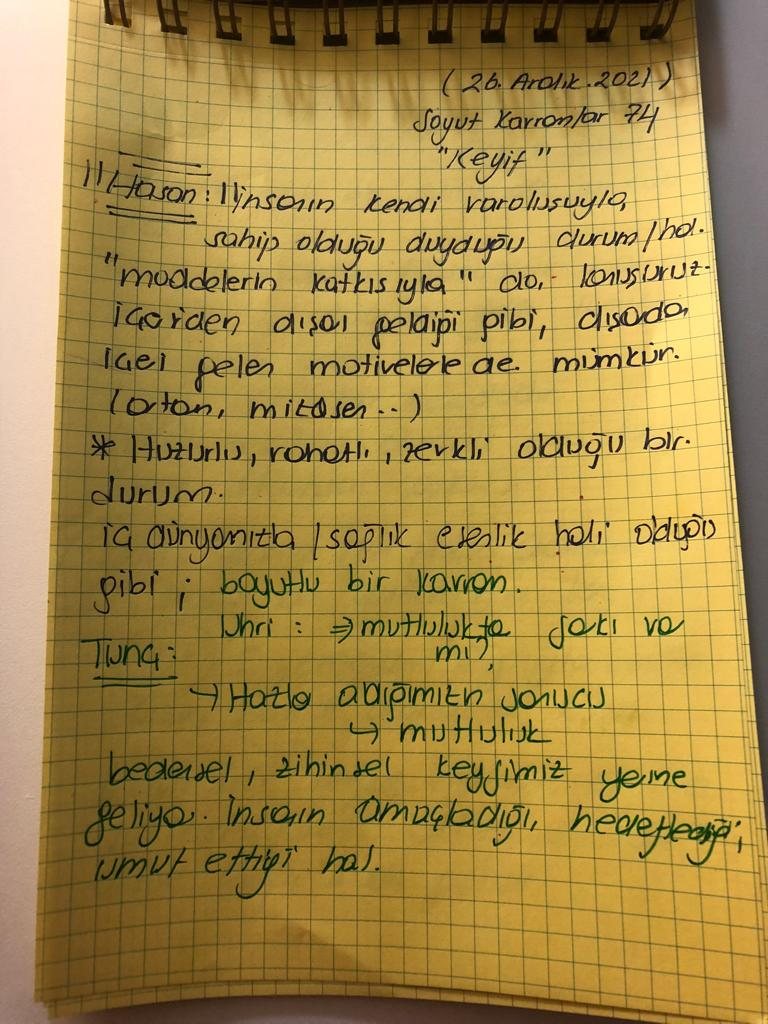 (26. Aralık. 2021)
Soyut Kavramlar 74
"Keyif"
"Hasan: "insanın kendi varoluşuyla,
sahip olduğu duyduğu durum/hal.
"maddelerin katkısıyla" da, konuşuruz.
içeriden dışarı geldiği gibi, dışarıdan
içeri gelen motivelerle de. mümkün.
(ortam, mitasen..)
* Huzurlu, rahatlı, zevkli olduğu bir.
durum.
iç dünyamızla / sağlık esenlik hali olduğu
gibi ; boyutlu bir kavram.
Uhri : ⇒ mutlulukta şakı va
mı?,
Tunç:
↳ Hazla aldığımızın sonucu
↳ mutluluk
bedensel, zihinsel keyfimiz yerine
geliyor. İnsanın amaçladığı, hedeflediği,
umut ettiği hal.